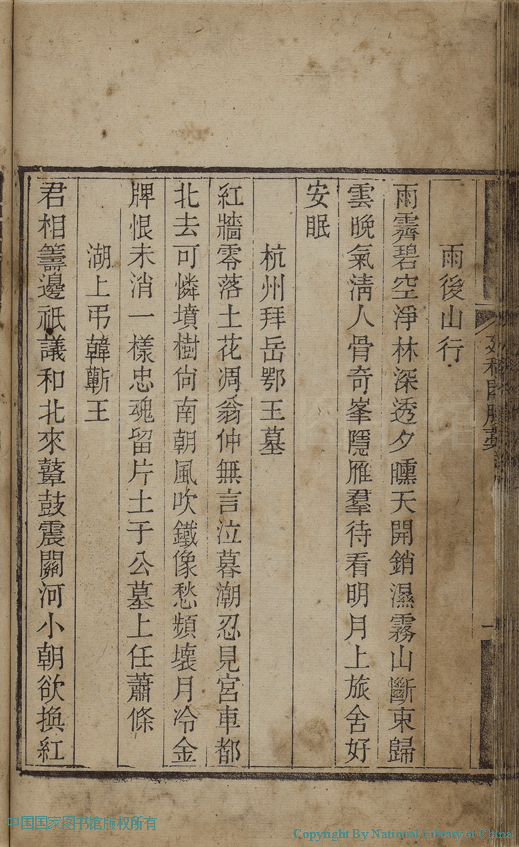 雨後山行
雨霽碧空淨林深透夕曛天開銷濕霧山斷束歸
雲晚氣淸人骨奇峯隱雁羣待看明月上旅舍好
安眠
杭州拜岳鄂王墓
紅牆零落土花凋翁仲無言泣暮潮忍見宮車都
北去可憐墳樹尙南朝風吹鐵像愁頻壞月冷金
牌恨未消一樣忠魂留片土于公墓上任蕭條
湖上弔韓蘄王
君相籌邊祇議和北來鼙鼓震關河小朝欲換紅
中国国家图书馆版权所有
Copyright By National Library of China